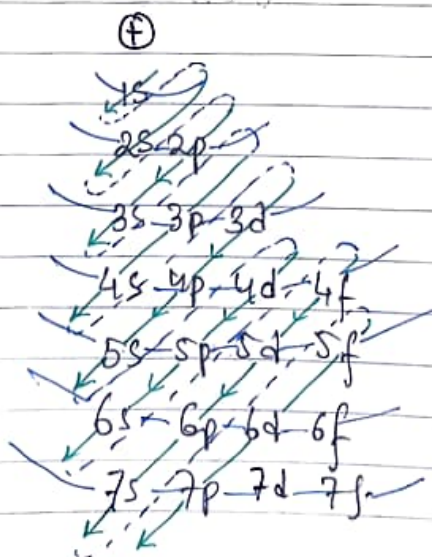 f
1s
2s 2p
3s 3p 3d
4s 4p 4d 4f
5s 5p 5d 5f
6s 6p 6d 6f
7s 7p 7d 7f